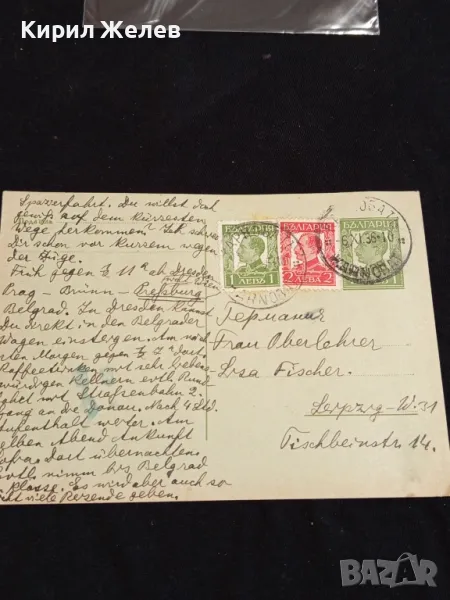 Кирил Желев
Spazierfahrt. Du willst doch
gewiss auf dem kürzesten
Wege herkommen? Ich schrieb
Dir schon vor kurzem wegen
der Züge.
Früh gegen ½ 11 ab Dresden
Prag – Brünn – Preßburg
Belgrad. In Dresden kannst
Du direkt in den Belgrader
Wagen einsteigen. Am näch-
sten Morgen gegen ½ 7 dort.
Kaffeetrinken mit sehr liebens-
würdigen Kellnern evtl. Rund-
Straßenbahn 2.
an die Donau. Nach 4 Std.
Aufenthalt weiter. Am
selben Abend Ankunft
Dort übernachten
Evtl. nimm bis Belgrad
Klasse. Es wird aber auch so
nicht viele Reisende geben.
БЪЛГАРИЯ
1 ЛЕВЪ 1
БЪЛГАРИЯ
2 ЛЕВА 2
БЪЛГАРИЯ
Германия
Frau Oberlehrer
Lisa Fischer.
Leipzig-W. 31
Tischbeinstr. 14.
BAZAR